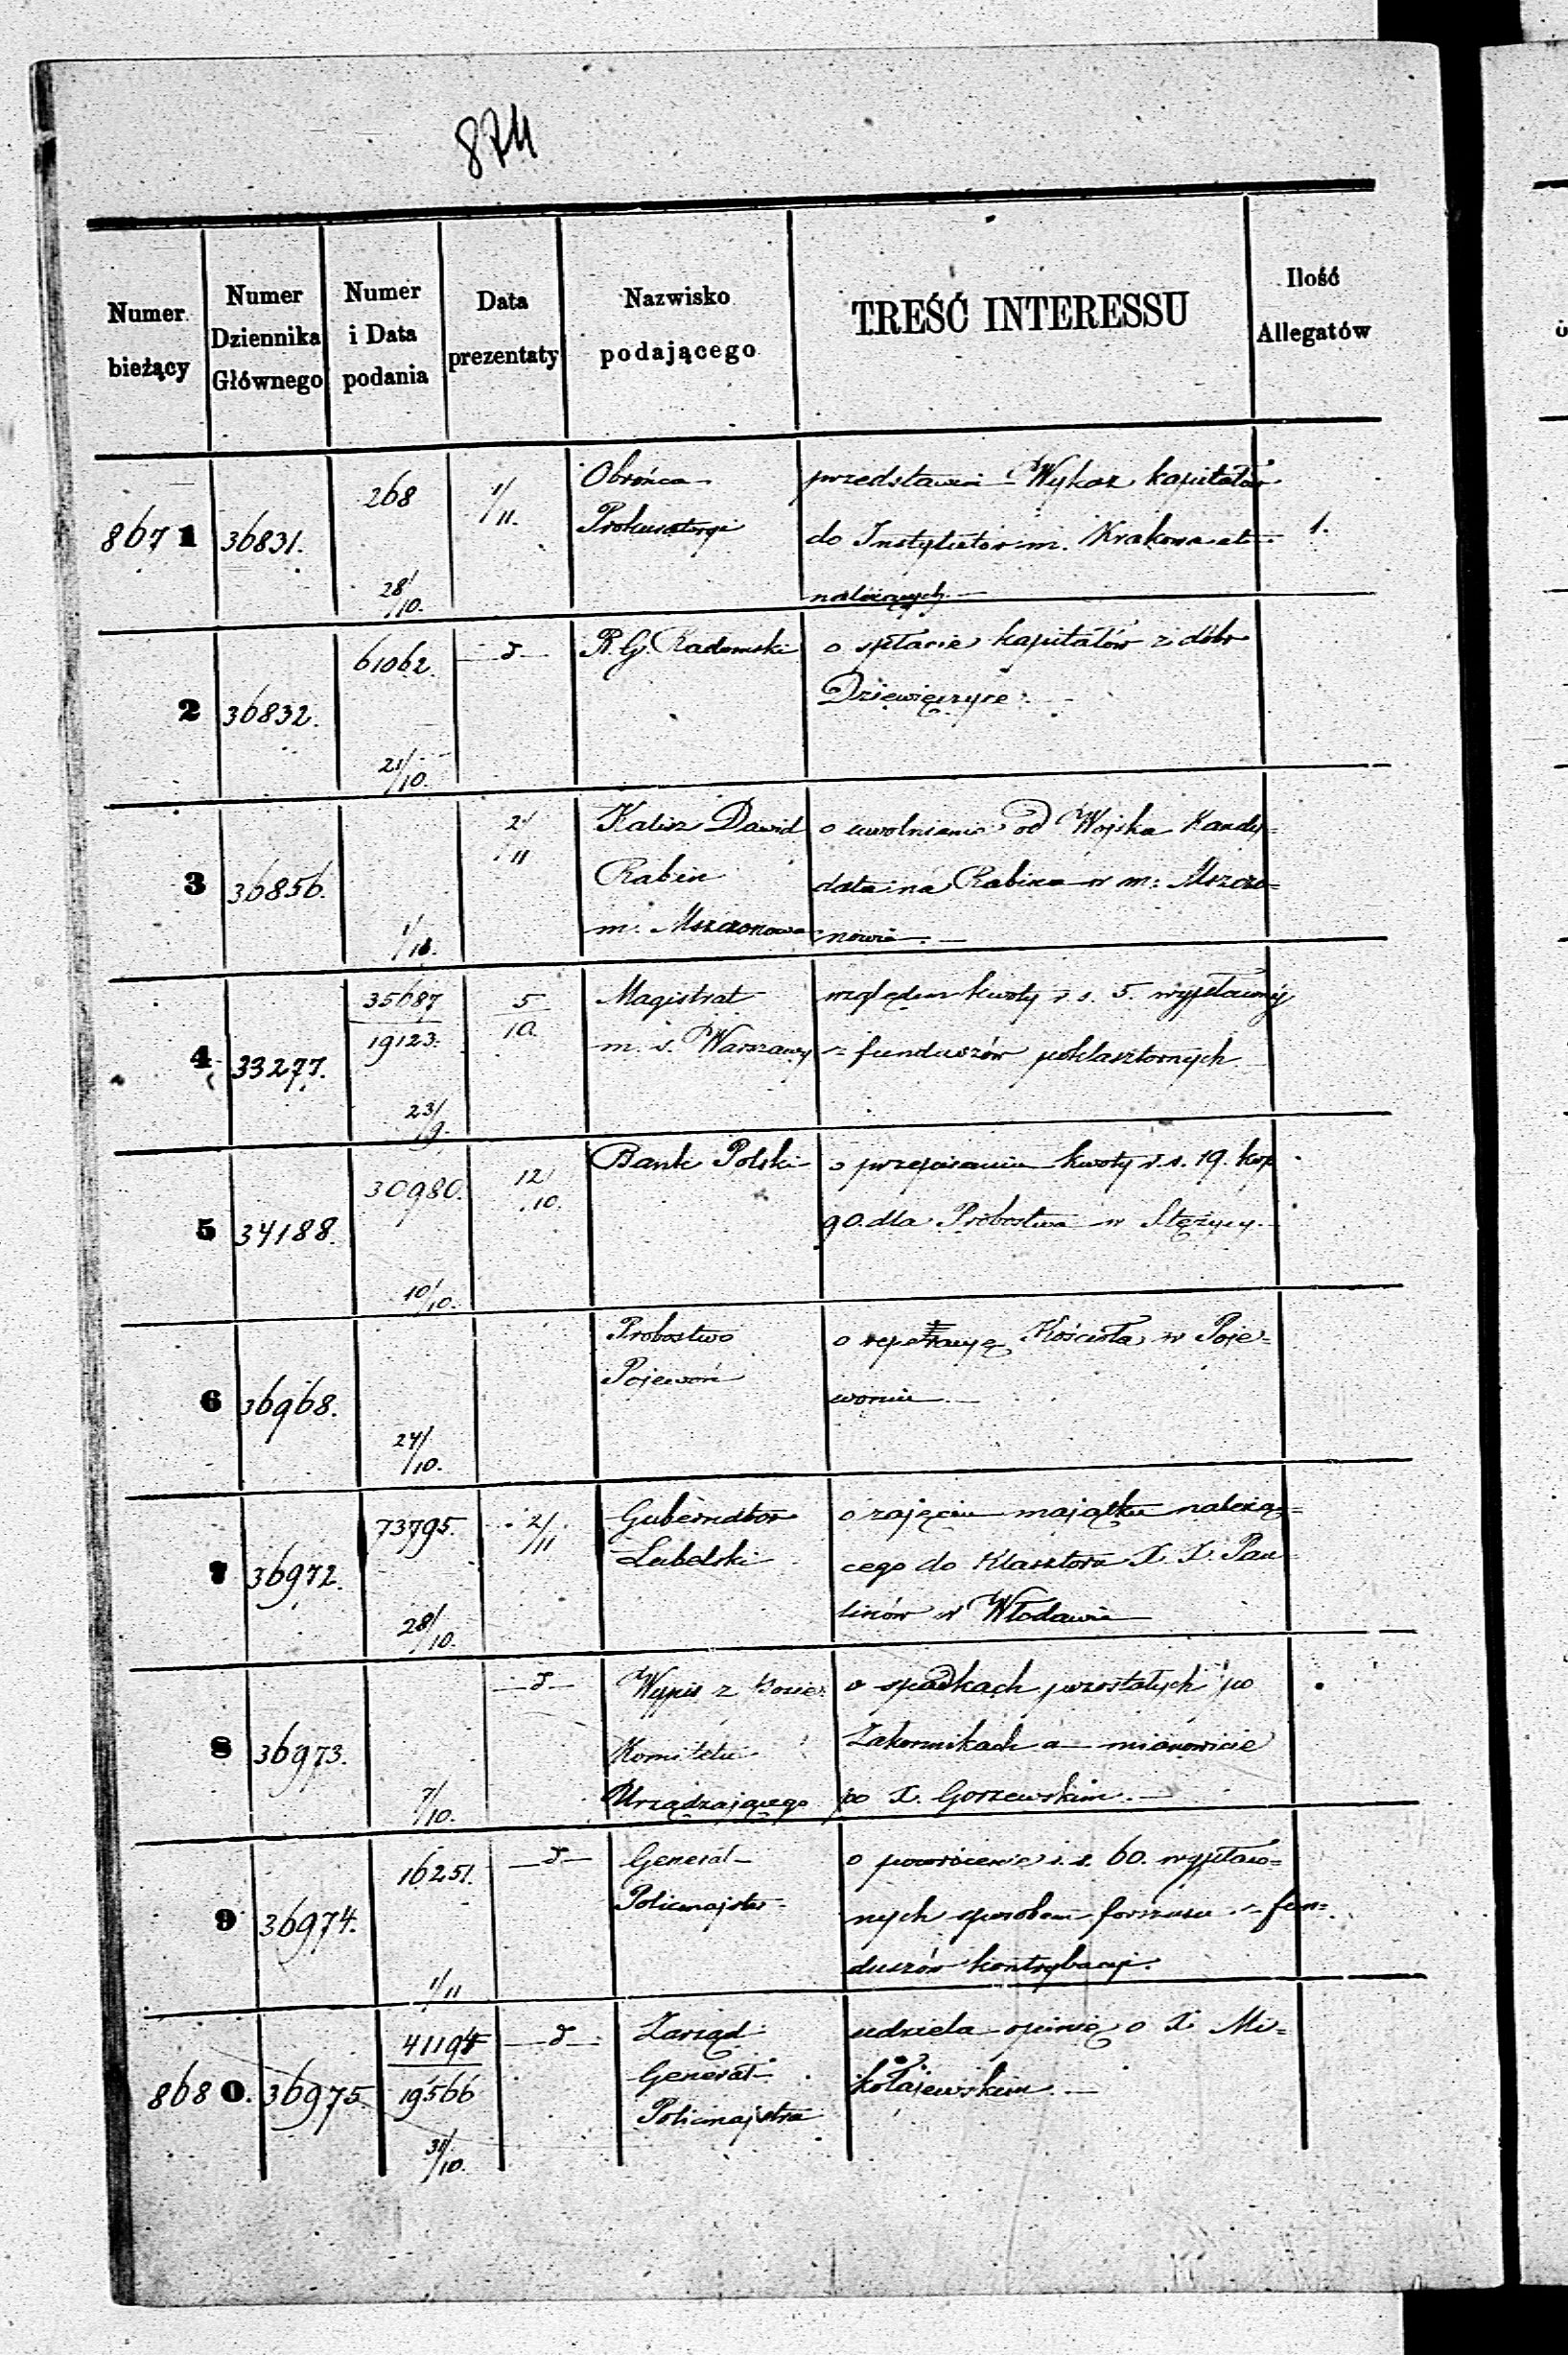 874
Numer bieżący
Numer Dziennika Głównego
Numer i Data podania
Data prezentaty
Nazwisko podającego
TREŚĆ INTERESSU
Ilość Allegatów
8671 36831. 268 28/10. 1/11. Obrońca przedstawia Wykaz kapitałów 1.
Prokuratorji do Instytutów m. Krakowa
należących.
2 36832. 61062. 21/10. d R. G. Radomski o spłacie kapitałów z dóbr
Dziewięczyce.
3 36856. 1/18. 2/11 Kalisz Dawid o uwolnienie od Wojska Kandy=
Rabin data na Rabina w m: Mszczo=
m. Mszczonowa nowie.
4 33277. 35687 19123. 23/9. 5/10. Magistrat względem kwoty r. s. 5. wypłaconej
m. s. Warszawy z funduszów poklasztornych
5 34188. 30980. 10/10. 12/10. Bank Polski o przepisaniu kwoty r. s. 19. kop
90. dla Probostwa w Stężycy.
6 36968. 24/10. Probostwo o reperacyę Kościoła w Poje=
Pojewoń woniu.
7 36972. 73795. 28/10. 2/11 Gubernator o zajęciu majątku należą=
Lubelski cego do Klasztora X. X. Pau=
linów w Włodawie
8 36973. 7/10. d Wypis z Posie: o spadkach pozostałych po
Komitetu Zakonnikach a mianowicie
Urządzającego po X. Gorzewskim.
9 36974. 16251. 1/11 d Generał o powrócenie r. s. 60. wypłaco=
Policmajster nych sposobem forszusu z fun=
duszów kontrybucji.
8680. 36975. 41194 19566 31/10. d Zarząd udziela opinię o X Mi=
Generał kołajewskim.
Policmajstra